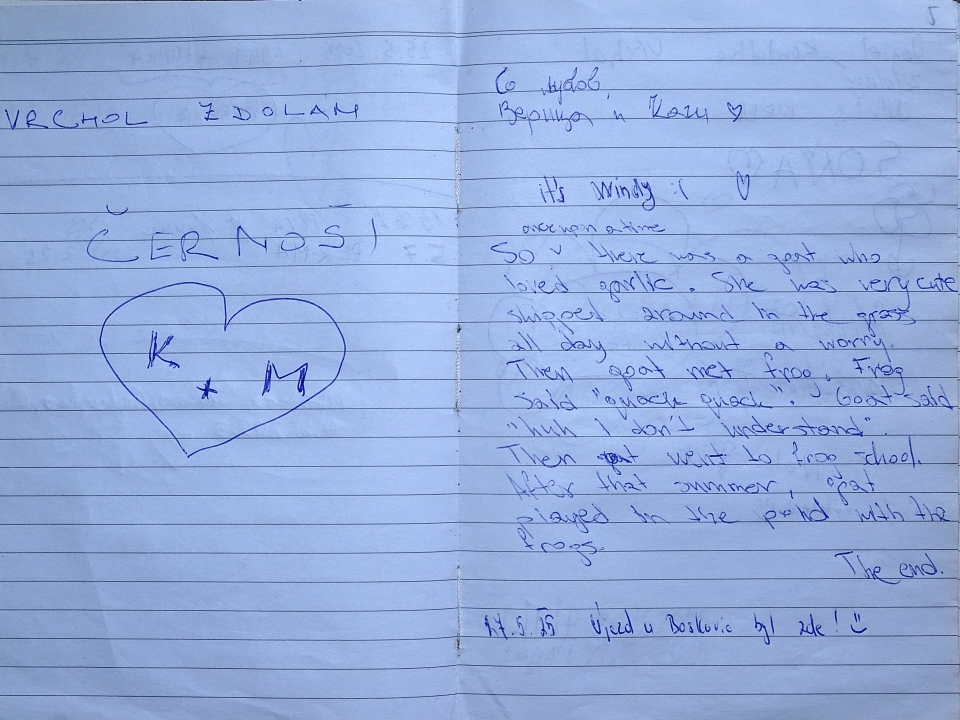 VRCHOL ZDOLÁN
ČERNOŠÍ
K
+ M
2
Со љубов,
Верица и Кати ♡
it's windy :( ♡
once upon a time
So ˅ there was a goat who
loved garlic. She was very cute
skipped around in the grass
all day without a worry.
Then goat met frog. Frog
said "quack quack". Goat said
"huh I don't understand".
Then goat went to frog school.
After that summer, goat
played in the pond with the
frogs.
The end.
27.5.25 Újezd u Boskovic byl zde! :)